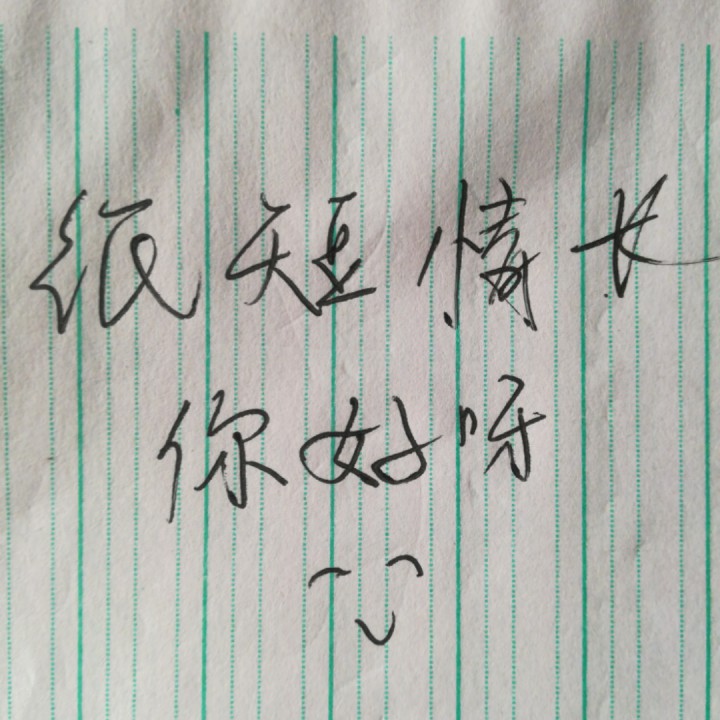 纸短情长
你好呀